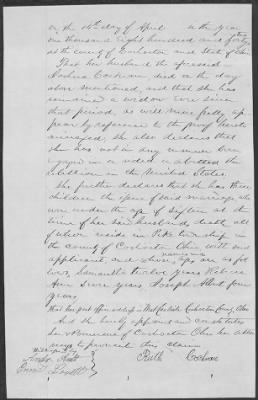 on the 14th day of April in the year
one thousand eight hundred and forty
at the county of Coshocton and State of
That her husband the aforesaid
Joshua Cochran died on the day
above mentioned, and that she has
remained a widow ever since
that period, as will more fully ap
pear by reference to the proof
She also declares that
she has not in any manner been
engaged in or aided or abetted the
rebellion in the United States
She further declares that she has three
children the issue of said marriage who
were under the age of Sixteen at the
time of her husbands death all
of whom reside in Pike township in
the county of Coshocton Ohio with said
applicant, and whose ages are as fol
lows, Samantha twelve years Rebecca
Ann seven years Joseph Albert four
years
That her post office address is West Carlisle Coshocton County Ohio
And she hereby appoints
of Coshocton Ohio her attor
neys to prosecute this claim
Ruth Cochran